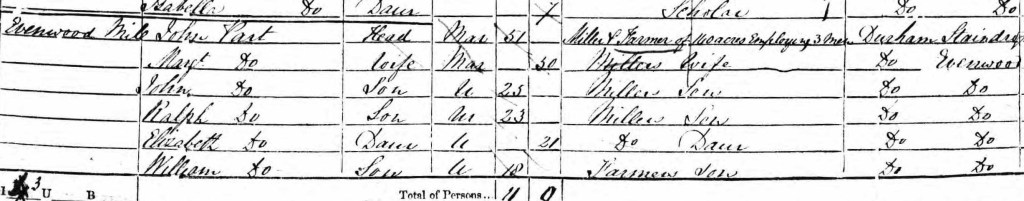 Isabella Do Daur 7 Scholar Do Do
Evenwood Mill John Part Head Mar 51 Miller & Farmer of 110 acres Employing 3 Men Durham Staindrop
Margt Do Wife Mar 50 Millers Wife Do Evenwood
John Do Son U 25 Millers Son Do Do
Ralph Do Son U 23 Millers Son Do Do
Elizabeth Do Daur U 21 Do Daur Do Do
William Do Son U 18 Farmers Son Do Do
3 U B Total of Persons.. 11 9